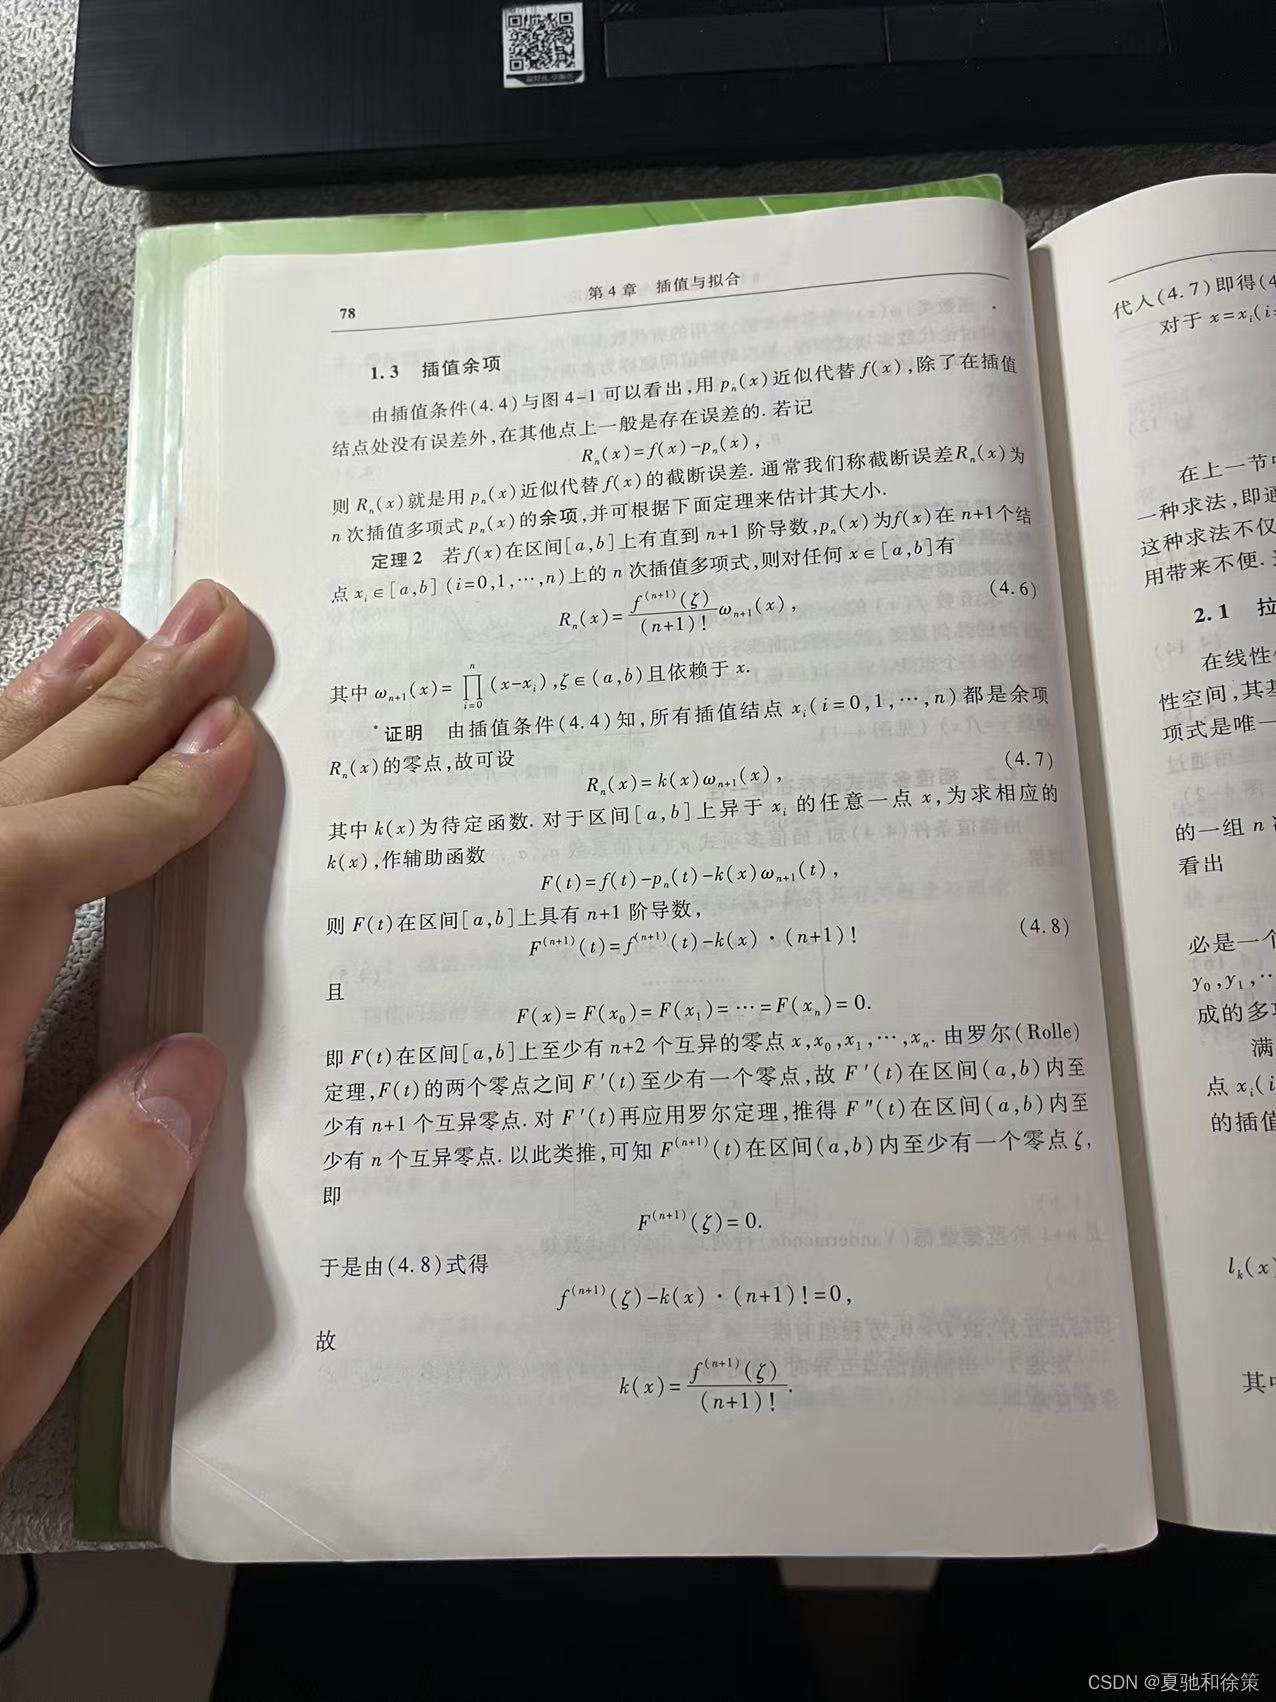 78
第4章 插值与拟合
1.3 插值余项
由插值条件(4.4)与图4-1可以看出,用pₙ(x)近似代替f(x),除了在插值
结点处没有误差外,在其他点上一般是存在误差的. 若记
Rₙ(x)=f(x)-pₙ(x),
则Rₙ(x)就是用pₙ(x)近似代替f(x)的截断误差. 通常我们称截断误差Rₙ(x)为
n次插值多项式pₙ(x)的余项,并可根据下面定理来估计其大小.
定理2 若f(x)在区间[a,b]上有直到n+1阶导数,pₙ(x)为f(x)在n+1个结
点xᵢ∈[a,b](i=0,1,⋯,n)上的n次插值多项式,则对任何x∈[a,b]有
Rₙ(x)=f⁽ⁿ⁺¹⁾(ζ)/(n+1)! ωₙ₊₁(x), (4.6)
其中ωₙ₊₁(x)=∏ⁿᵢ₌₀(x-xᵢ),ζ∈(a,b)且依赖于x.
*证明 由插值条件(4.4)知,所有插值结点xᵢ(i=0,1,⋯,n)都是余项
Rₙ(x)的零点,故可设
Rₙ(x)=k(x)ωₙ₊₁(x), (4.7)
其中k(x)为待定函数. 对于区间[a,b]上异于xᵢ的任意一点x,为求相应的
k(x),作辅助函数
F(t)=f(t)-pₙ(t)-k(x)ωₙ₊₁(t),
则F(t)在区间[a,b]上具有n+1阶导数,
F⁽ⁿ⁺¹⁾(t)=f⁽ⁿ⁺¹⁾(t)-k(x)·(n+1)! (4.8)
且
F(x)=F(x₀)=F(x₁)=⋯=F(xₙ)=0.
即F(t)在区间[a,b]上至少有n+2个互异的零点x,x₀,x₁,⋯,xₙ. 由罗尔(Rolle)
定理,F(t)的两个零点之间F′(t)至少有一个零点,故F′(t)在区间(a,b)内至
少有n+1个互异零点. 对F′(t)再应用罗尔定理,推得F″(t)在区间(a,b)内至
少有n个互异零点. 以此类推,可知F⁽ⁿ⁺¹⁾(t)在区间(a,b)内至少有一个零点ζ,
即
F⁽ⁿ⁺¹⁾(ζ)=0.
于是由(4.8)式得
f⁽ⁿ⁺¹⁾(ζ)-k(x)·(n+1)!=0,
故
k(x)=f⁽ⁿ⁺¹⁾(ζ)/(n+1)!.
代入(4.7)即得(4
对于x=xᵢ(i=
在上一节
一种求法,即通
这种求法不仅
用带来不便.
2.1 拉
在线性
性空间,其基
项式是唯一
的一组n
看出
必是一个
y₀,y₁,⋯
成的多项
满
点xᵢ(i
的插值
lₖ(x)
其中
CSDN @夏驰和徐策